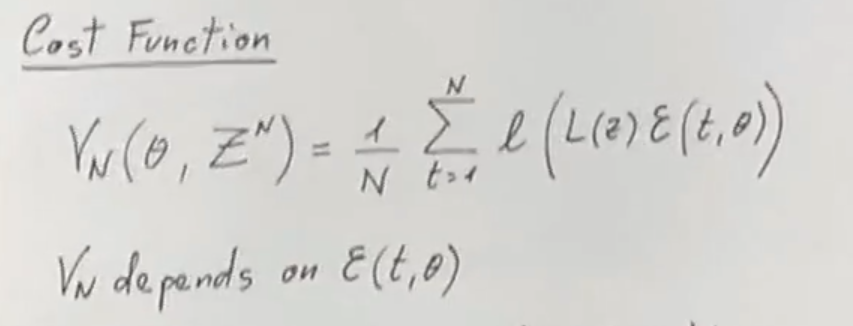 Cost Function
V_N(θ, Z^N) = 1/N ∑_{t=1}^{N} ℓ(L(z) ε(t,θ))
V_N depends on ε(t,θ)